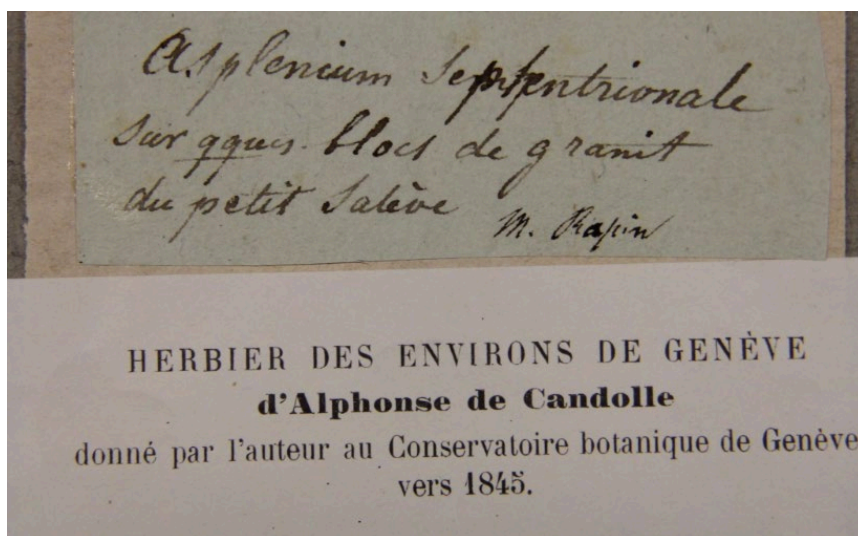 Asplenium Septentrionale
Sur qques blocs de granit
du petit Salève
M. Rapin
HERBIER DES ENVIRONS DE GENÈVE
d'Alphonse de Candolle
donné par l'auteur au Conservatoire botanique de Genève
vers 1845.